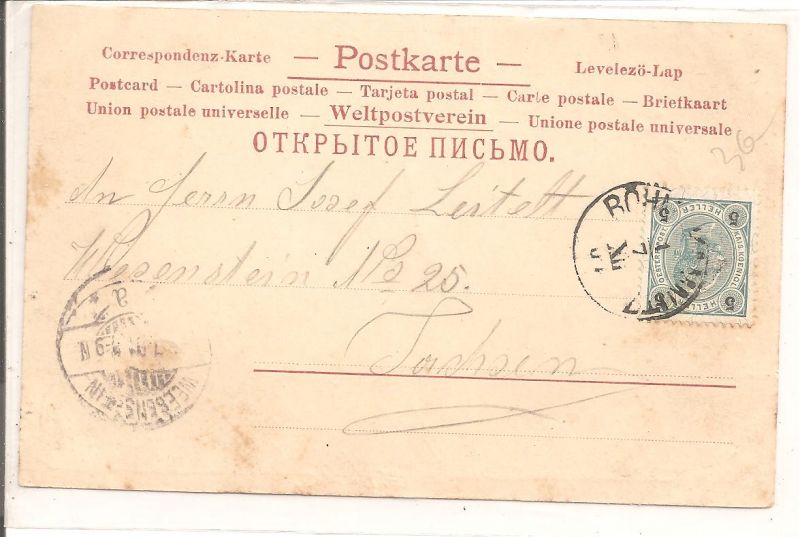 Correspondenz-Karte — Postkarte — Levelező-Lap
Postcard — Cartolina postale — Tarjeta postal — Carte postale — Briefkaart
Union postale universelle — Weltpostverein — Unione postale universale
ОТКРЫТОЕ ПИСЬМО.
36
An Herrn Josef Leitelt
Wesenstein No 25.
Sachsen
5 HELLER 5
KAIS. KOENIGL.
OESTERR. POST
WEESENSTEIN